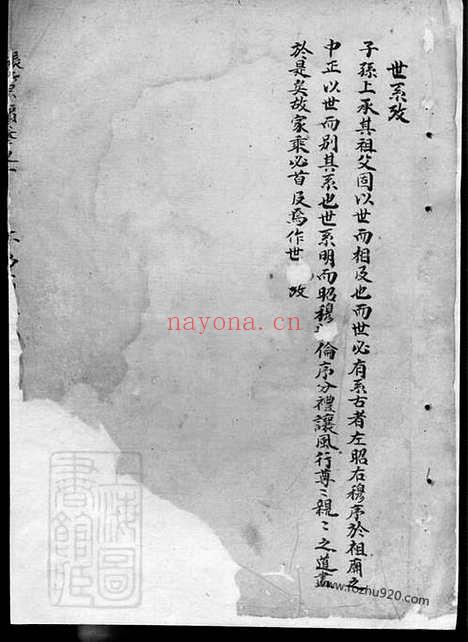 世系攷
子孫上承其祖父固以世而相及也而世必有系古者左昭右穆序於祖廟之
中正以世而別其系也世系明而昭穆 倫序分禮讓風行尊〻親〻之道盡
於是矣故家乘必首及焉作世 攷
nayona.cn
www.fozhu920.com